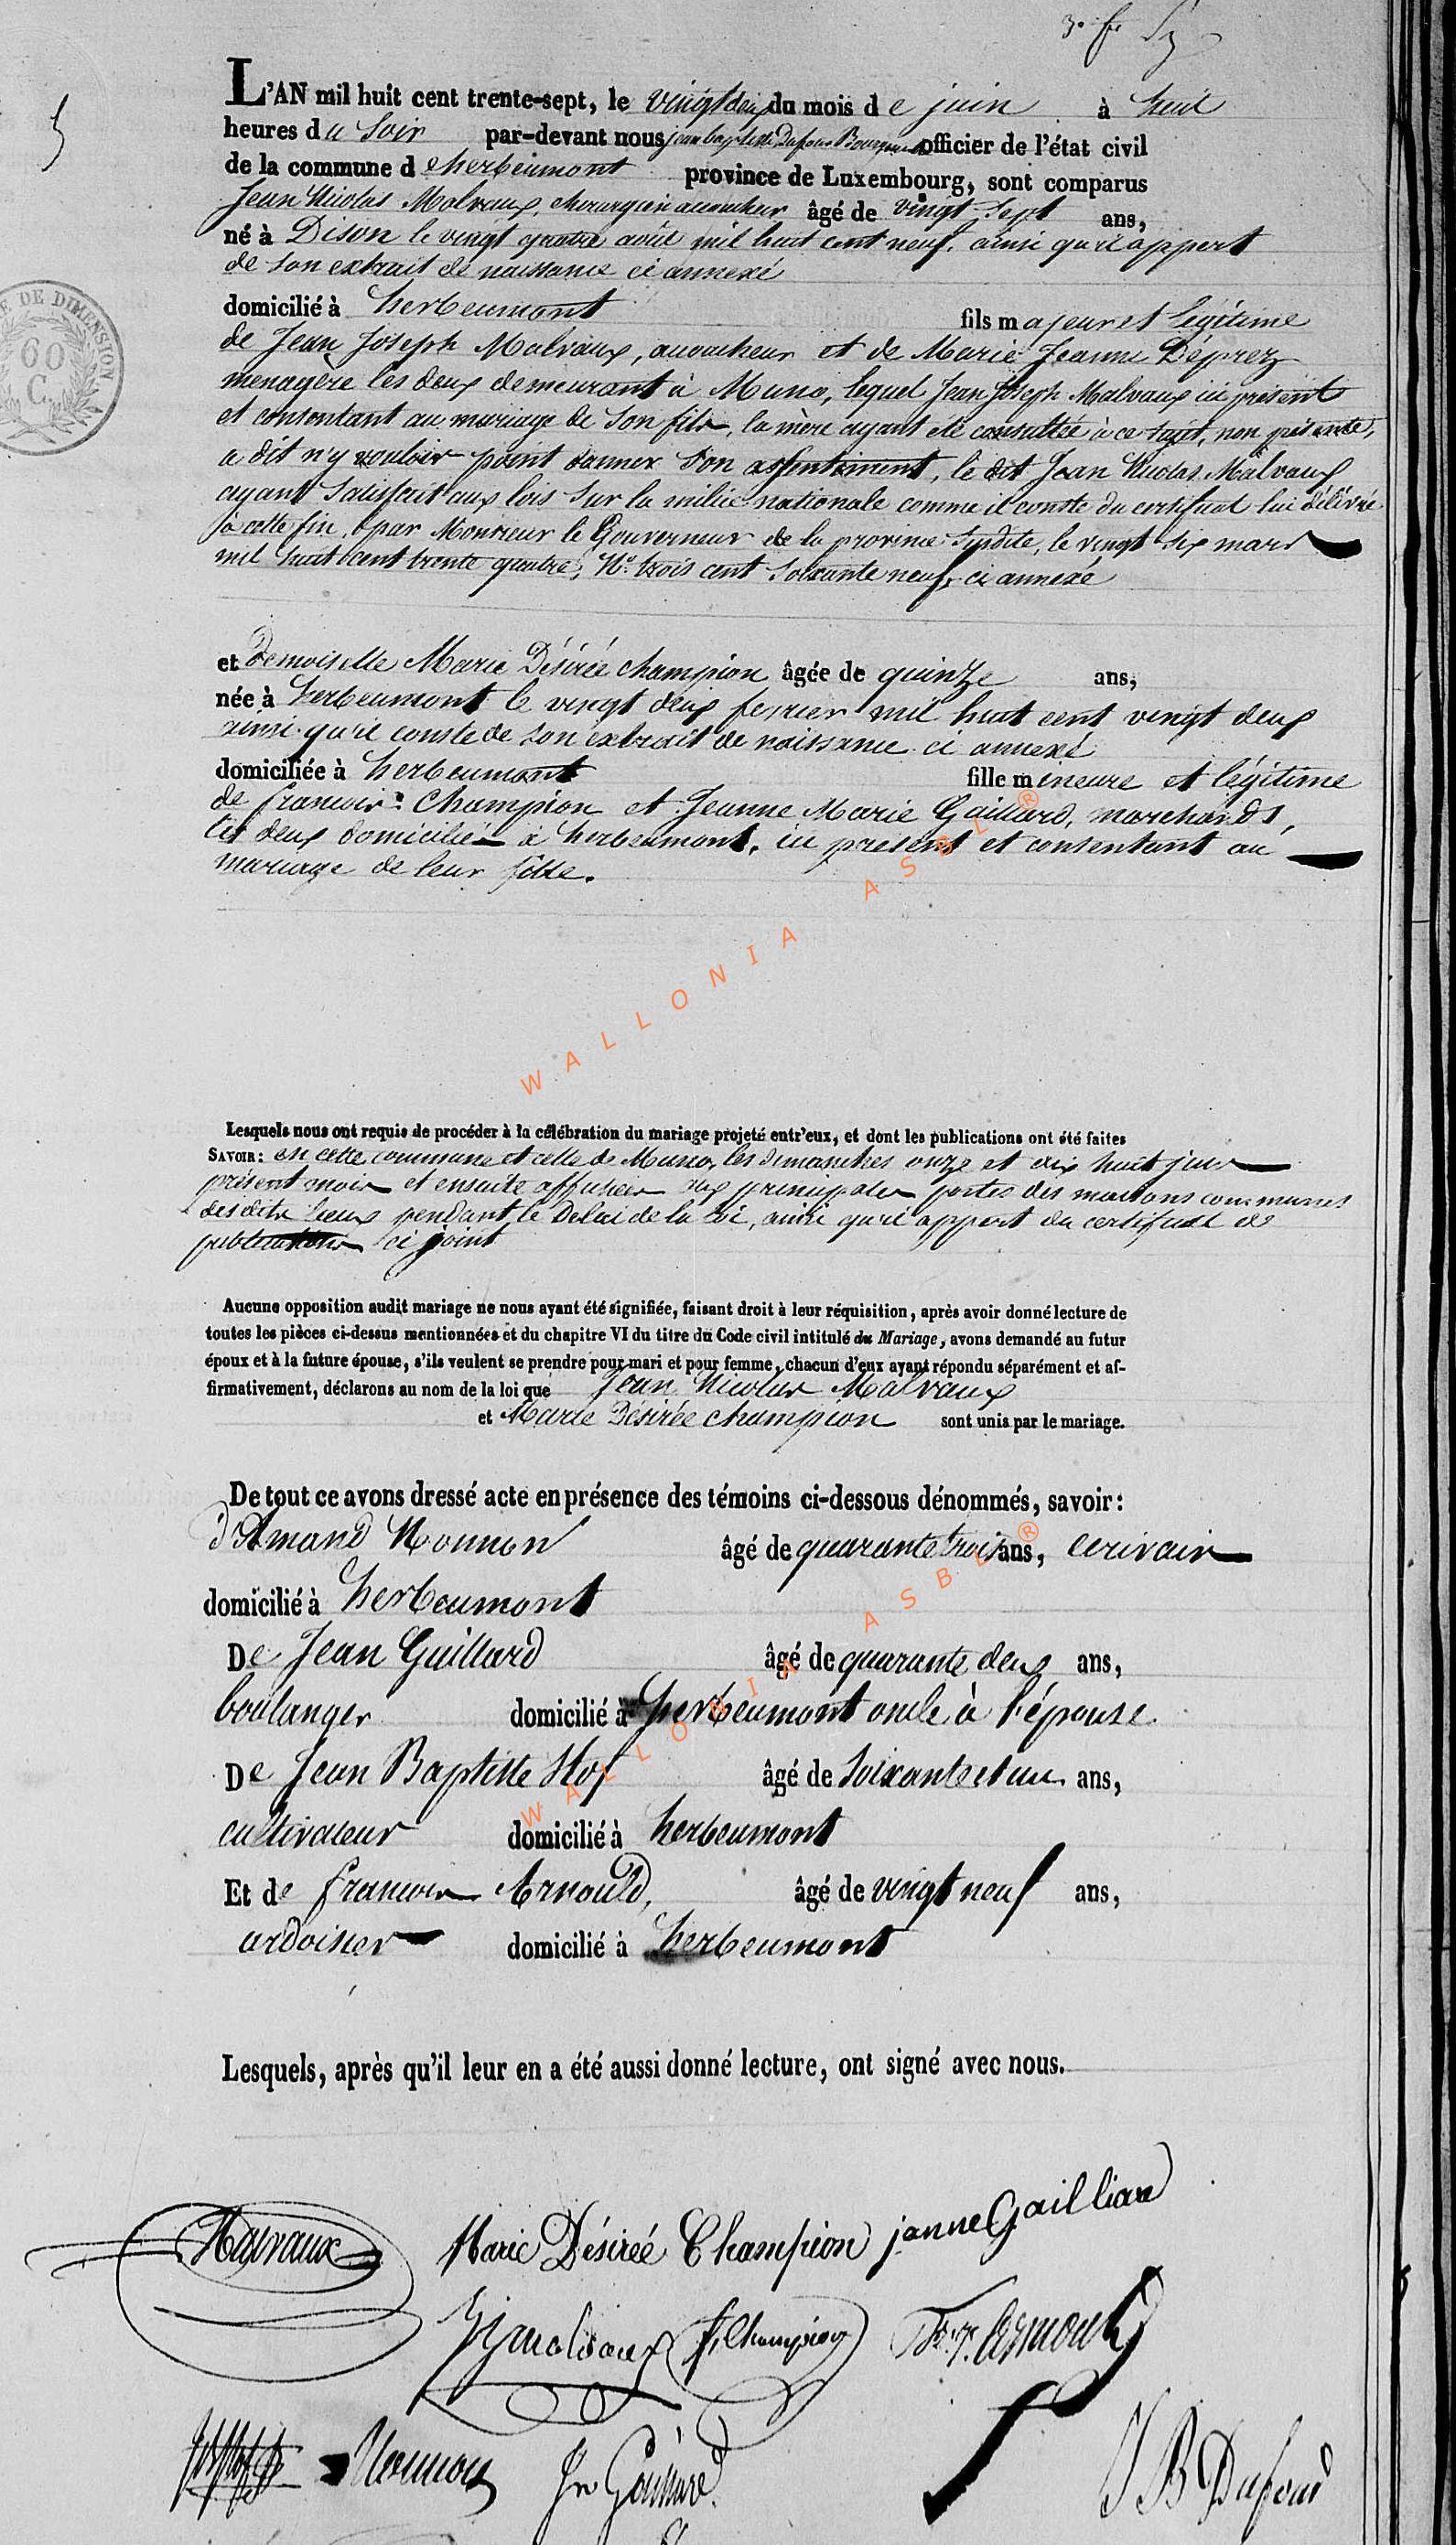 L'AN mil huit cent trente-sept, le vingt deux du mois de juin à huit
heures du soir par-devant nous jean baptiste Dufour Bourgmestre officier de l'état civil
de la commune d herbeumont province de Luxembourg, sont comparus
Jean Nicolas Malvaux, chirurgien accoucheur âgé de vingt sept ans,
né à Dison le vingt quatre août mil huit cent neuf, ainsi qu'il appert
de son extrait de naissance ci annexé
domicilié à herbeumont fils majeur et légitime
de Jean Joseph Malvaux, accoucheur et de Marie Jeanne Déprez
menagère les deux demeurant à Muno, lequel Jean Joseph Malvaux ici présent
et consentant au mariage de son fils, la mère ayant été consultée à ce sujet, non présente,
a dit n'y vouloir point donner son assentiment, le dit Jean Nicolas Malvaux
ayant satisfait aux lois sur la milice nationale comme il conste du certificat lui délivré
à cette fin, par Monsieur le Gouverneur de la province susdite, le vingt six mars
mil huit cent trente quatre, N° trois cent soixante neuf, ci annexé
et Demoiselle Marie Désirée Champion âgée de quinze ans,
née à herbeumont le vingt deux fevrier mil huit cent vingt deux
ainsi qu'il conste de son extrait de naissance ci annexé
domiciliée à herbeumont fille mineure et légitime
de francois Champion et Jeanne Marie Gaillard, marchands,
les deux domiciliés à herbeumont, ici présent et consentant au
mariage de leur fille.
Lesquels nous ont requis de procéder à la célébration du mariage projeté entr'eux, et dont les publications ont été faites
SAVOIR: en cette commune et celle de Muno, les dimanches onze et dix huit juin
présent mois et ensuite affichées aux principales portes des maisons communes
desdits lieux pendant le Delai de la loi, ainsi qu'il appert du certificat de
publications ci joint
Aucune opposition audit mariage ne nous ayant été signifiée, faisant droit à leur réquisition, après avoir donné lecture de
toutes les pièces ci-dessus mentionnées et du chapitre VI du titre du Code civil intitulé du Mariage, avons demandé au futur
époux et à la future épouse, s'ils veulent se prendre pour mari et pour femme, chacun d'eux ayant répondu séparément et af-
firmativement, déclarons au nom de la loi que Jean Nicolas Malvaux
et Marie Désirée Champion sont unis par le mariage.
De tout ce avons dressé acte en présence des témoins ci-dessous dénommés, savoir:
d'Amand Nounon âgé de quarante trois ans, ecrivain
domicilié à herbeumont
De Jean Guillard âgé de quarante deux ans,
boulanger domicilié à herbeumont oncle à l'épouse
De Jean Baptiste Hof âgé de soixante et un ans,
cultivateur domicilié à herbeumont
Et de francois Arnould, âgé de vingt neuf ans,
ardoisier domicilié à herbeumont
Lesquels, après qu'il leur en a été aussi donné lecture, ont signé avec nous.
Malvaux Marie Désirée Champion janne Gailliard
JJ malvaux f. Champion Arnould
Nounon Jn Gaillard J B Dufour
E DE DIMENSION
60
C.
WALLONIA ASBL ®
WALLONIA ASBL ®